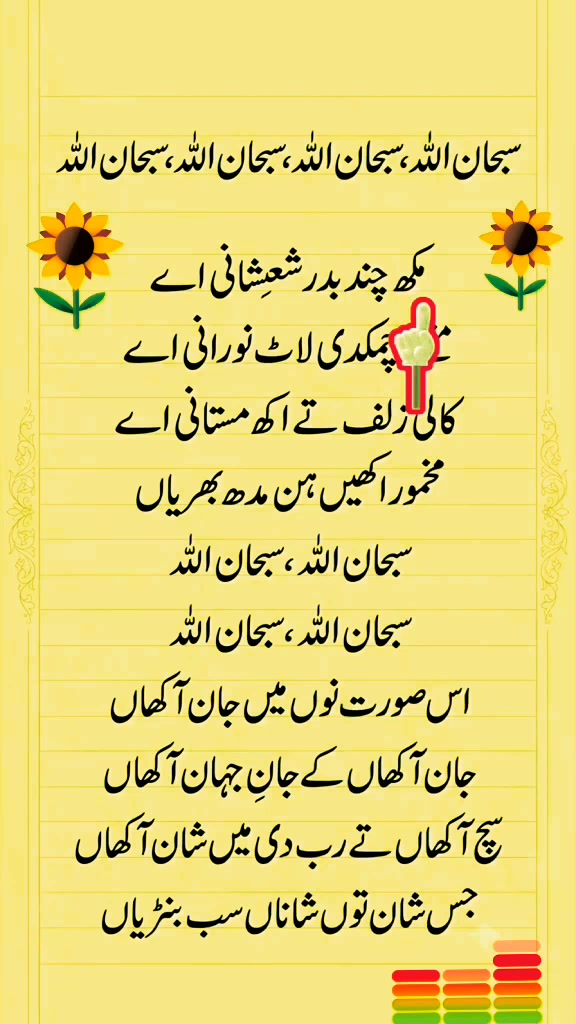 سبحان اللہ،سبحان اللہ،سبحان اللہ،سبحان اللہ
مکھ چند بدر شعشانی اے
چمکدی لاٹ نورانی اے
کالی زلف تے اکھ مستانی اے
مخمور اکھیں ہن مدھ بھریاں
سبحان اللہ ،سبحان اللہ
سبحان اللہ ،سبحان اللہ
اس صورت نوں میں جان آکھاں
جان آکھاں کے جانِ جہان آکھاں
سچ آکھاں تے رب دی میں شان آکھاں
جس شان توں شاناں سب بنڑیاں